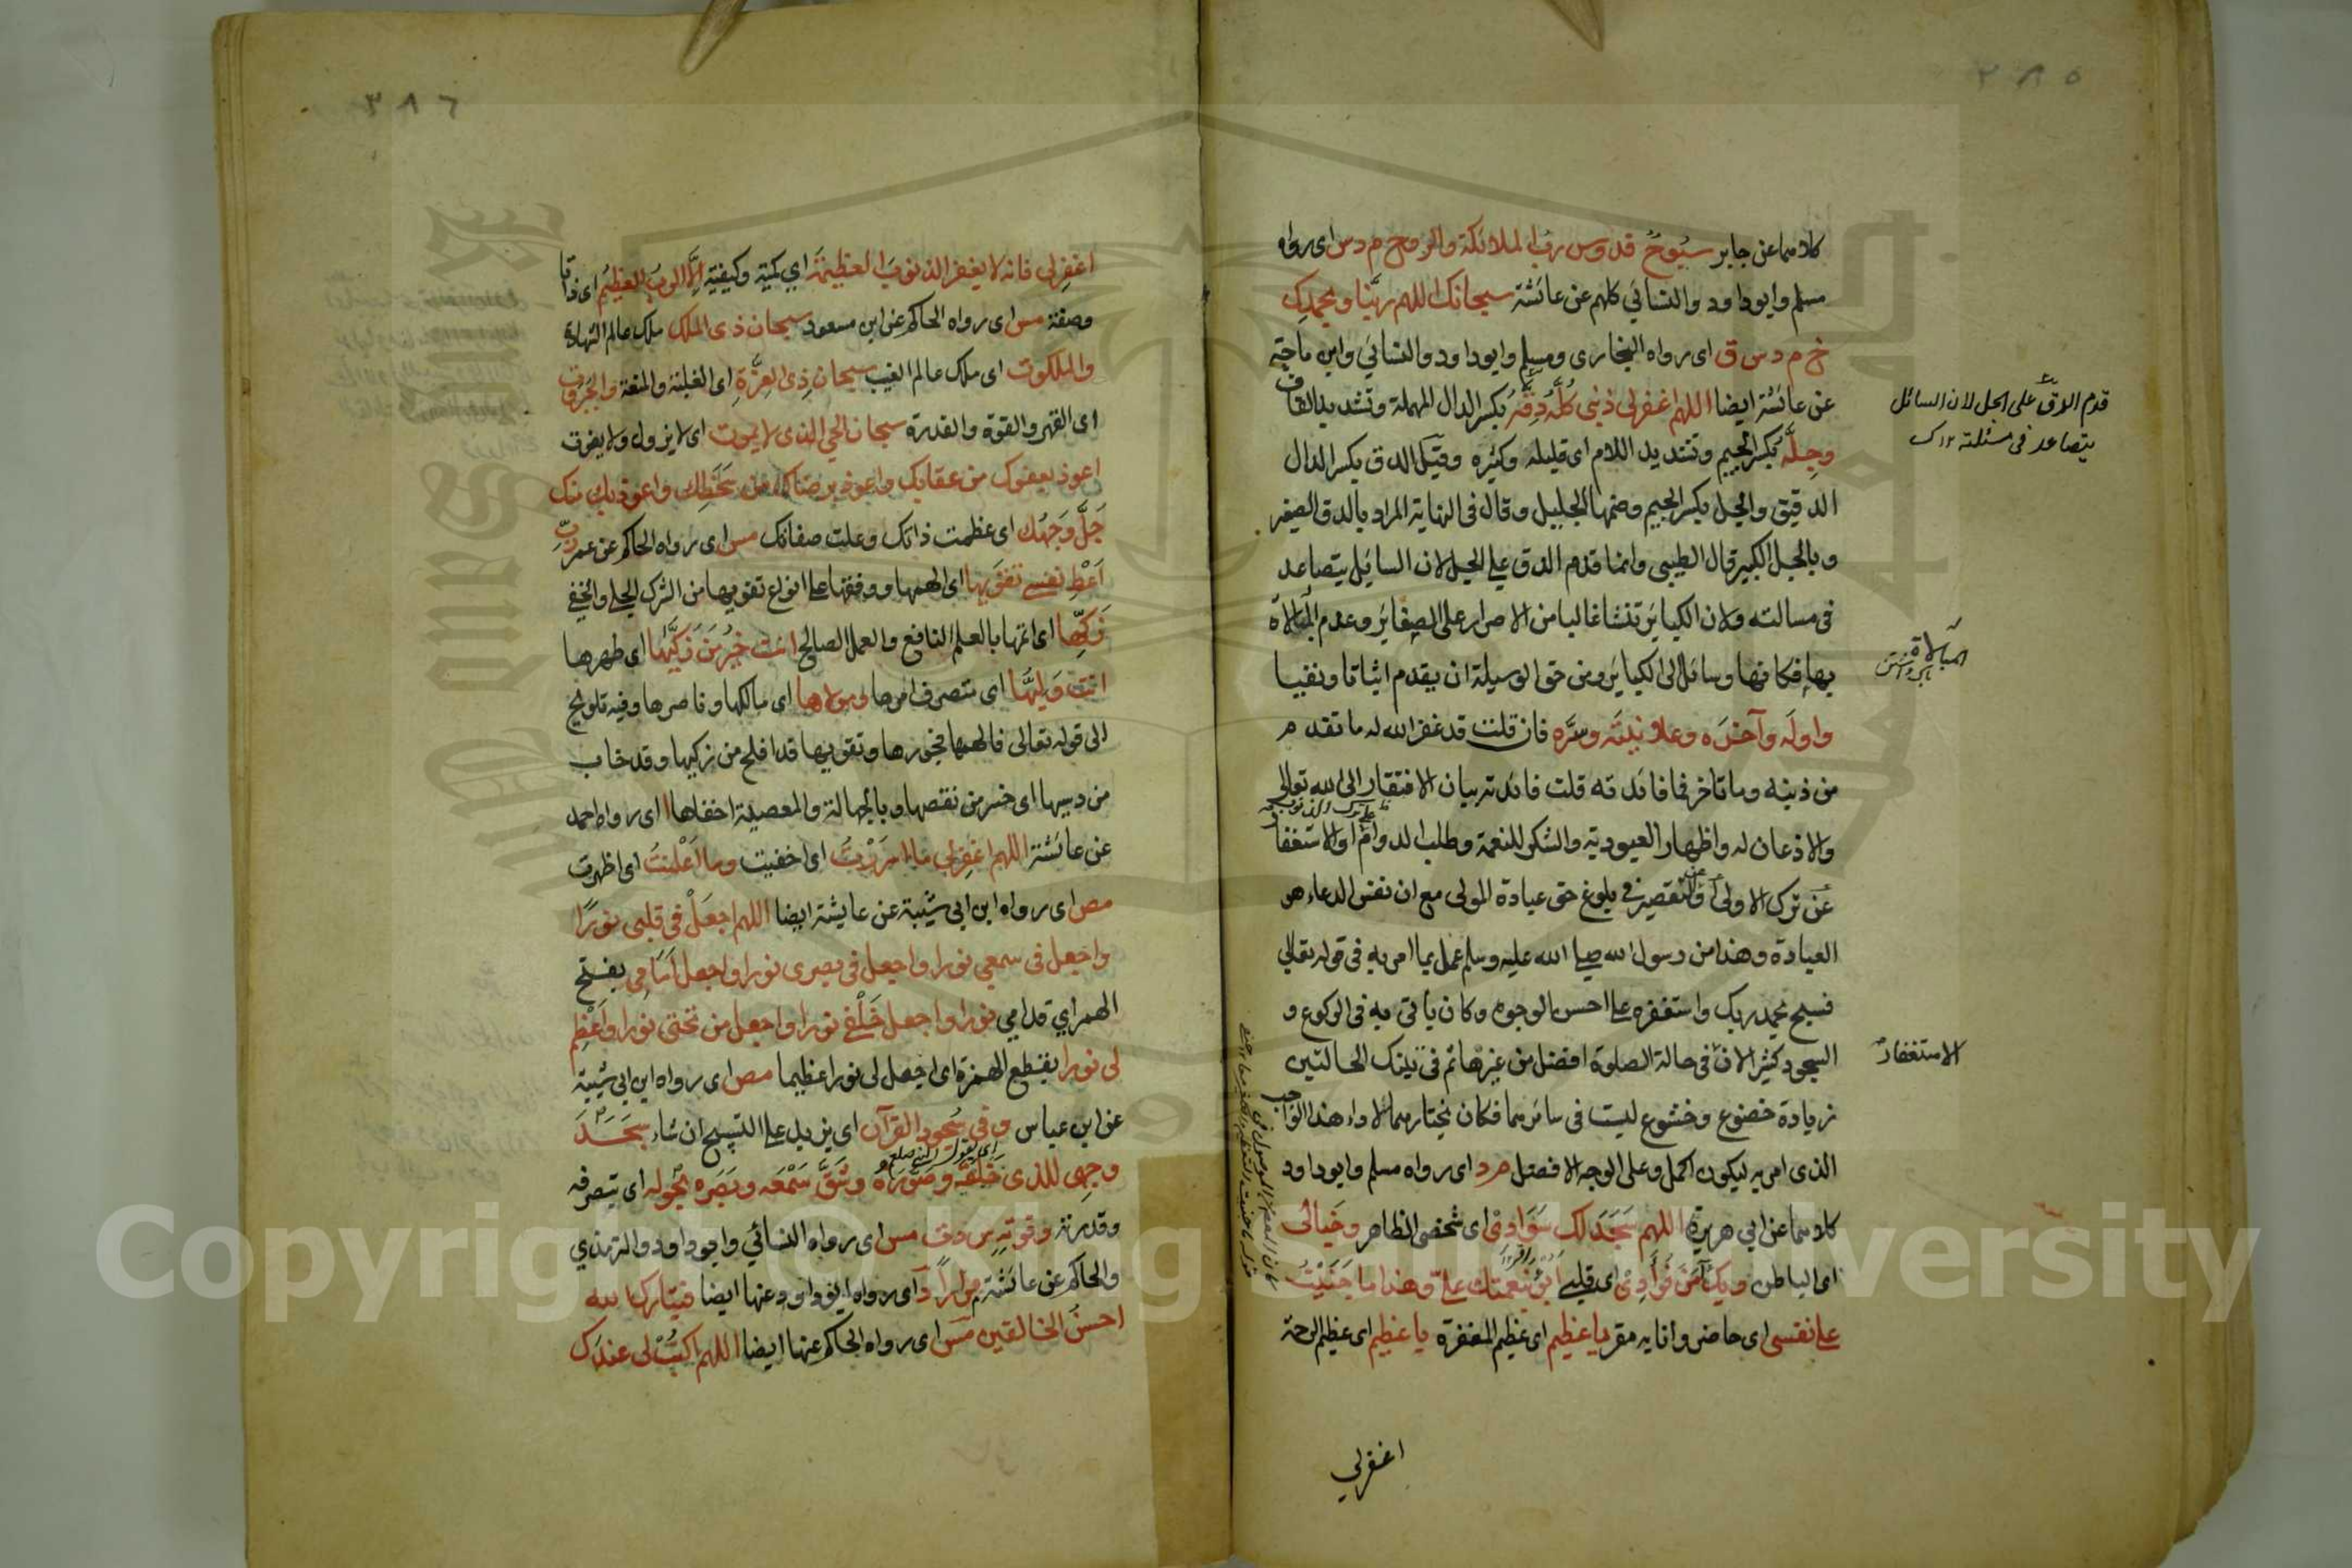 ٣٨٥
كلاهما عن جابر سبوح قدوس رب الملائكة والروح م د س اى رواه
مسلم وابوداود والنسائي كلهم عن عائشة سبحانك اللهم ربنا وبحمدك
خ م د س ق اى رواه البخارى ومسلم وابوداود والنسائي وابن ماجة
عن عائشة ايضا اللهم اغفرلى ذنبى كُلَّهُ دِقَّهُ بكسر الدال المهملة وتشديد القاف
وجِلَّه بكسر الجيم وتشديد اللام اى قليله وكثيره وقيل الدق بكسر الدال
الدقيق والجل بكسر الجيم وضمها الجليل وقال فى النهاية المراد بالدق الصغير
وبالجل الكبير قال الطيبى وانما قدم الدق على الجل لان السائل يتصاعد
فى مسالته ولان الكبائر تنشا غالبا من الاصرار على الصغاير وعدم المبالاة
بها فكانها وسائل الى الكبائر ومن حق الوسيلة ان يقدم اثباتا ونفيا
واوله وآخره وعلانيته وسره فان قلت قد غفر الله له ما تقدم
من ذنبه وما تاخر فما فائدته قلت فائدته بيان الافتقار الى الله تعالى
والاذعان له واظهار العبودية والشكر للنعمة وطلب الدوام او الاستغفار
عن ترك الاولى او التقصير فى بلوغ حق عبادة المولى مع ان نفس الدعاء هو
العبادة وهذا من رسول الله صلى الله عليه وسلم عمل بما امر به فى قوله تعالى
فسبح بحمد ربك واستغفره على احسن الوجوه وكان يأتى به فى الركوع و
السجود كثيرا لان فى حالة الصلوة افضل من غيرها ثم فى تينك الحالتين
زيادة خضوع وخشوع ليست فى سائرهما فكان يختارهما لاداء هذا الواجب
الذى امر به ليكون اكمل وعلى الوجه الافضل م د اى رواه مسلم وابوداود
كلاهما عن ابى هريرة اللهم سَجَدَ لك سَوَادِىْ اى شخصى الظاهر وخيالى
اى الباطن وبك آمَنَ فُؤَادِىْ اى قلبى اَبُوْءُ بنعمتك علىّ وهذا ما جَنَيْتُ
على نفسى اى حاضر وانا به مقر يا عظيم اى عظيم المغفرة يا عظيم اى عظيم الرحمة
اغفرلى
قدم الدق على الجل لان السائل
يتصاعد فى مسئلته ١٢ ك
المبالاة
الاستغفار
٣٨٦
اغفرلى فانه لا يغفر الذنوب العظيمة اى كمية وكيفية اِلَّا الربُّ العظيمُ اى ذاتا
وصفة مس اى رواه الحاكم عن ابن مسعود سبحان ذى الملك ملك عالم الشهادة
والملكوت اى ملك عالم الغيب سبحان ذِى العِزَّةِ اى الغلبة والمنعة والجبروت
اى القهر والقوة والقدرة سبحان الحي الذى لا يموت اى لا يزول ولا يفوت
اعوذ بعفوك من عقابك واعوذ برضاك من سَخَطِك واعوذ بك منك
جَلَّ وَجْهُك اى عظمت ذاتك وعلت صفاتك مس اى رواه الحاكم عن عمر ربِّ
اَعْطِ نفسى تقويها اى الهمها ووفقها على انواع تقويها من الشرك الجلى والخفى
زَكِّها اى انمها بالعلم النافع والعمل الصالح انت خيرُ مَن زكَّيها اى طهرها
انت وَلِيُّها اى متصرف امرها ومولاها اى مالكها وناصرها وفيه تلويح
الى قوله تعالى فالهمها فجورها وتقويها قد افلح من زكيها وقد خاب
من دسيها اى خسر من نقصها وبالجهالة والمعصية اخفاها ا اى رواه احمد
عن عائشة اللهم اغفرلى ما اسررْتُ اى اخفيت وما اَعْلَنتُ اى اظهرت
مص اى رواه ابن ابى شيبة عن عايشة ايضا اللهم اجعَلْ فى قلبى نورًا
واجعل فى سمعى نورا واجعل فى بصرى نورا واجعل اَمَامِى بفتح
الهمز اى قدامى نورا واجعل خَلْفى نورا واجعل من تحتى نورا وَاَعْظِم
لى نورا بقطع الهمزة اى اجعل لى نورا عظيما مص اى رواه ابن ابى شيبة
عن ابن عباس وفى سُجود القرآن اى يزيد على التسبيح ان شاء سَجَدَ
وجهى للذى خَلَقَه وصَوَّرَهُ وشَقَّ سَمْعَه وبَصَره بحوله اى بتصرفه
وقدرته وقوّته س د ت مس اى رواه النسائي وابوداود والترمذي
والحاكم عن عائشة مرارا د اى رواه ابوداود عنها ايضا فتبارك الله
احسن الخالقين مس اى رواه الحاكم عنها ايضا اللهم اكتُبْ لى عندَك
Copyright © King Saud University